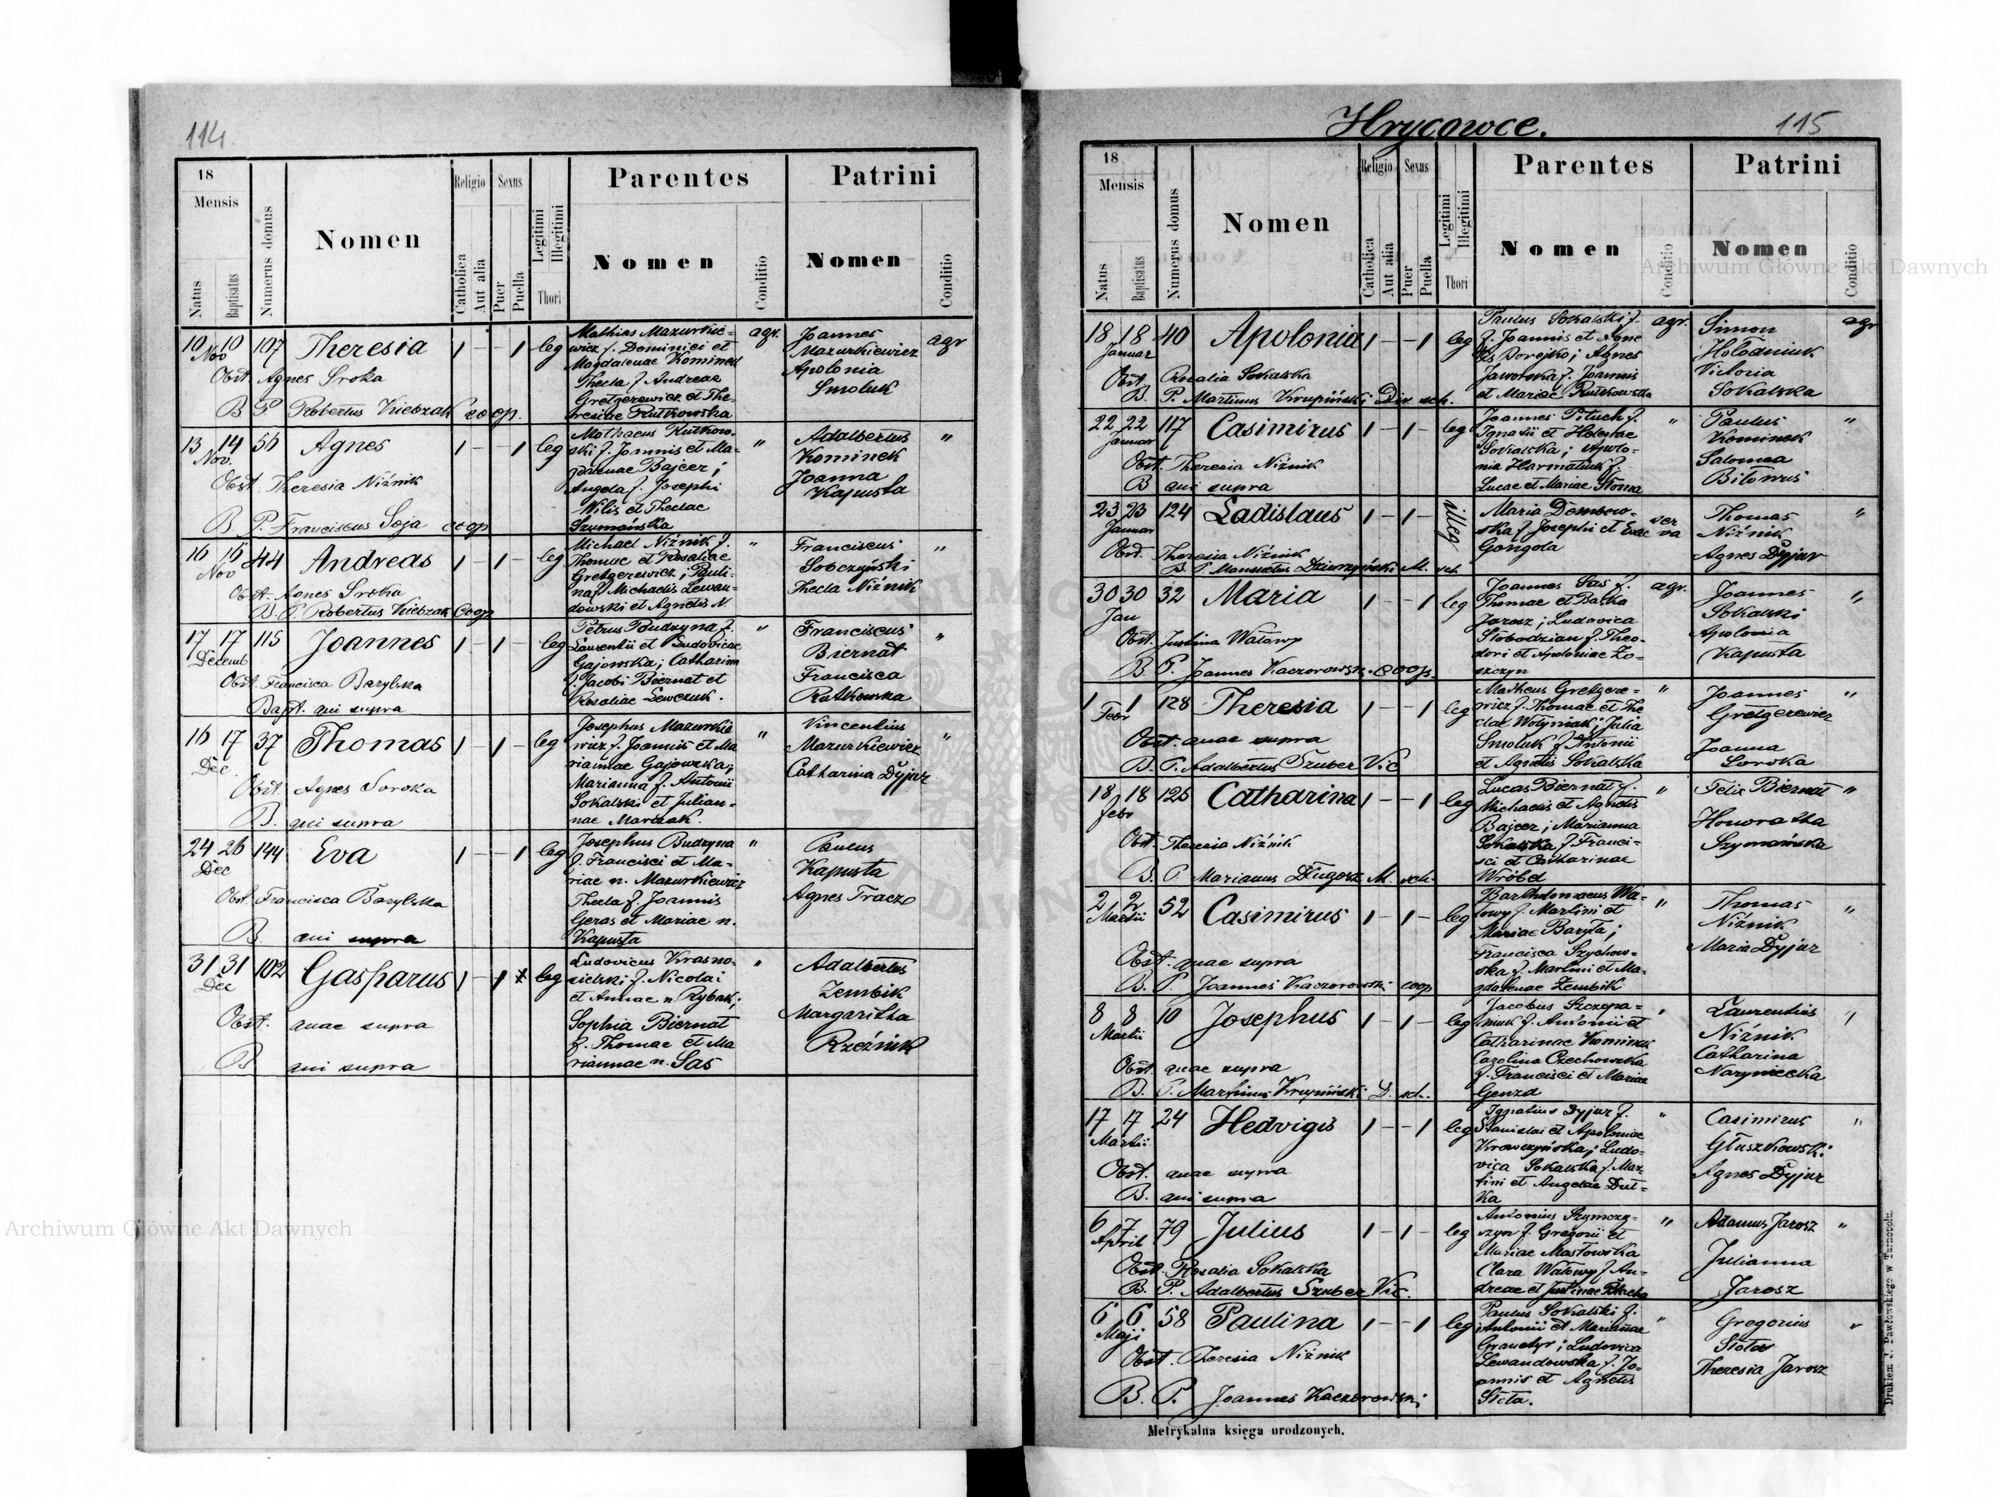 114.
18
Mensis
Natus
Baptisatus
Numerus domus
Nomen
Religio
Catholica
Aut alia
Sexus
Puer
Puella
Legitimi
Illegitimi
Thori
Parentes
Nomen
Conditio
Patrini
Nomen
Conditio
10 10 107 Theresia 1 - - 1 leg
Nov
Obst. Agnes Sroka
B P Robertus Kiebzak coop.
Mathias Mazurkie-
wicz f. Dominici et
Magdalenae Kominek
Thecla f. Andreae
Gretgerewicz et The-
resiae Rutkowska
agr.
Joannes
Mazurkiewicz
Apolonia
Smoluk
agr
13 14 56 Agnes 1 - - 1 leg
Nov.
Obst. Theresia Niżnik
B. P. Franciscus Soja coop
Mathaeus Rutkow-
ski f. Joannis et Ma-
gdalenae Bajcer;
Angela f. Josephi
Wilis et Theclae
Szumańska
"
Adalbertus
Kominek
Joanna
Kapusta
"
16 16 44 Andreas 1 - 1 - leg
Nov
Obst. Agnes Sroka
B. P. Robertus Kiebzak Coop
Michael Niżnik f.
Thomae et Rosaliae
Gretgerewicz; Pauli-
na f Michaelis Lewan-
dowski et Agnetis N.
"
Franciscus
Sobczyński
Thecla Niżnik
"
17 17 115 Joannes 1 - 1 - leg
Decemb
Obst. Francisca Barylska
Bapt. qui supra
Petrus Budzyna f.
Laurentii et Ludovicae
Gajowska; Catharina
f. Jacobi Biernat et
Rosaliae Lewczuk.
"
Franciscus
Biernat
Francisca
Rutkowska
"
16 17 37 Thomas 1 - 1 - leg
Dec
Obst. Agnes Soroka
B. qui supra
Josephus Mazurkie
wicz f. Joannis et Ma
riannae Gajowska;
Marianna f. Antonii
Sokalski et Julian-
nae Marszak.
"
Vincentius
Mazurkiewicz
Catharina Dyjur
"
24 26 144 Eva 1 - - 1 leg
Dec
Obst. Francisca Barylska
B qui supra
Josephus Budzyna
f. Francisci et Ma-
riae n. Mazurkiewicz
Thecla f. Joannis
Geras et Mariae n.
Kapusta
"
Paulus
Kapusta
Agnes Tracz
31 31 102 Gasparus 1 - 1 x leg
Dec
Obst. quae supra
B qui supra
Ludovicus Krasno-
sielski f. Nicolai
et Annae n. Rybak;
Sophia Biernat
f. Thomae et Ma
riannae n. Sas
"
Adalbertus
Zembik
Margaritha
Rzeźnik
Hrycowce.
115
18
Mensis
Natus
Baptisatus
Numerus domus
Nomen
Religio
Catholica
Aut alia
Sexus
Puer
Puella
Legitimi
Illegitimi
Thori
Parentes
Nomen
Conditio
Patrini
Nomen
Conditio
18 18 40 Apolonia 1 - - 1 leg
Januar
Obst. Rosalia Sokalska
B. P. Martinus Krupiński Dir. sch.
Paulus Sokalski f.
f. Joannis et Agne
Agnes
Jaworska f. Joannis
et Mariae Rutkowska
agr.
Simon
Hołodniuk
Victoria
Sokalska
agr
22 22 117 Casimirus 1 - 1 - leg
Januar
Obst. Theresia Niżnik
B qui supra
Joannes Pituch f.
Ignatii et Helenae
Sokalska; Apolo-
nia Harmatiuk f.
Lucae et Mariae Słoma
"
Paulus
Kominek
Salomea
"
23 23 124 Ladislaus 1 - 1 - illeg
Januar
Obst. Theresia Niżnik
B. P. Mansuetus Dzierżyński M. sch.
Maria Dembow-
ska f Josephi et Evae
Gongola
ser
va
Thomas
Niżnik
Agnes Dyjur
"
30 30 32 Maria 1 - - 1 leg
Jan
Obst. Justina Watowy
B. P. Joannes Kaczorowski. coop.
Joannes Sas f.
Thomae et
Jarosz; Ludovica
Słobodzian f. Theo-
dori et Apoloniae Zo-
szczyn
agr.
Joannes
Sokalski
Apolonia
Kapusta
"
1 1 128 Theresia 1 - - 1 leg
Febr
Obst. quae supra
B. P. Adalbertus Szuber Vic
Matheus Gretgere-
wicz f. Thomae et The
clae Wołyniak; Julia
Smoluk f Antonii
et Agnetis Sokalska
"
Joannes
Gretgerewicz
Joanna
Soroka
"
18 18 125 Catharina 1 - - 1 leg
febr
Obst. Theresia Niżnik
B. P. Marianus Długosz M. sch.
Lucas Biernat f.
Michaelis et Agnetis
Bajcer; Marianna
Sokalska f Franci-
sci et Catharinae
Wróbel
"
Felix Biernat
Honoratha
Szymańska
"
2 2 52 Casimirus 1 - 1 - leg
Martii
Obst. quae supra
B. P Joannes Kaczorowski coop
Bartholomaeus Wa-
towy f Martini et
Mariae Baryła;
Francisca Szychow-
ska f. Martini et Ma-
gdalenae Zembik
"
Thomas
Niżnik
Maria Dyjur
"
8 8 10 Josephus 1 - 1 - leg
Martii
Obst. quae supra
B. P. Martinus Krupiński D. sch.
Jacobus Szczepa-
niuk f. Antonii et
Catharinae Kominek
Carolina Czechowska
f. Francisci et Mariae
Genza
"
Laurentius
Niżnik
Catharina
Naryniecka
"
17 17 24 Hedvigis 1 - - 1 leg
Martii
Obst. quae supra
B. qui supra
Ignatius Dyjur f.
Stanislai et Apoloniae
Krawczyńska; Ludo-
vica Sokalska f. Mar-
tini et Angelae Dut-
ka
"
Casimirus
Głuszkowski
Agnes Dyjur
"
6 7 79 Julius 1 - 1 - leg
April
Obst. Rosalia Sokalska
B. P. Adalbertus Szuber Vic.
Antonius Szymczy-
szyn f. Gregorii et
Mariae Masłowska
Clara Watowy f. An-
dreae et Justinae
"
Adamus Jarosz
Julianna
Jarosz
"
6 6 58 Paulina 1 - - 1 leg
Maji
Obst. Theresia Niżnik
B. P. Joannes Kaczorowski
Paulus Sokalski f.
Antonii et Mariannae
Ludovica
Lewandowska f. Jo-
annis et Agnetis
Steta.
"
Gregorius
Theresia Jarosz
"
Metrykalna księga urodzonych.
Drukiem J. Pawłowskiego w Tarnopolu.
Archiwum Główne Akt Dawnych
Archiwum Główne Akt Dawnych